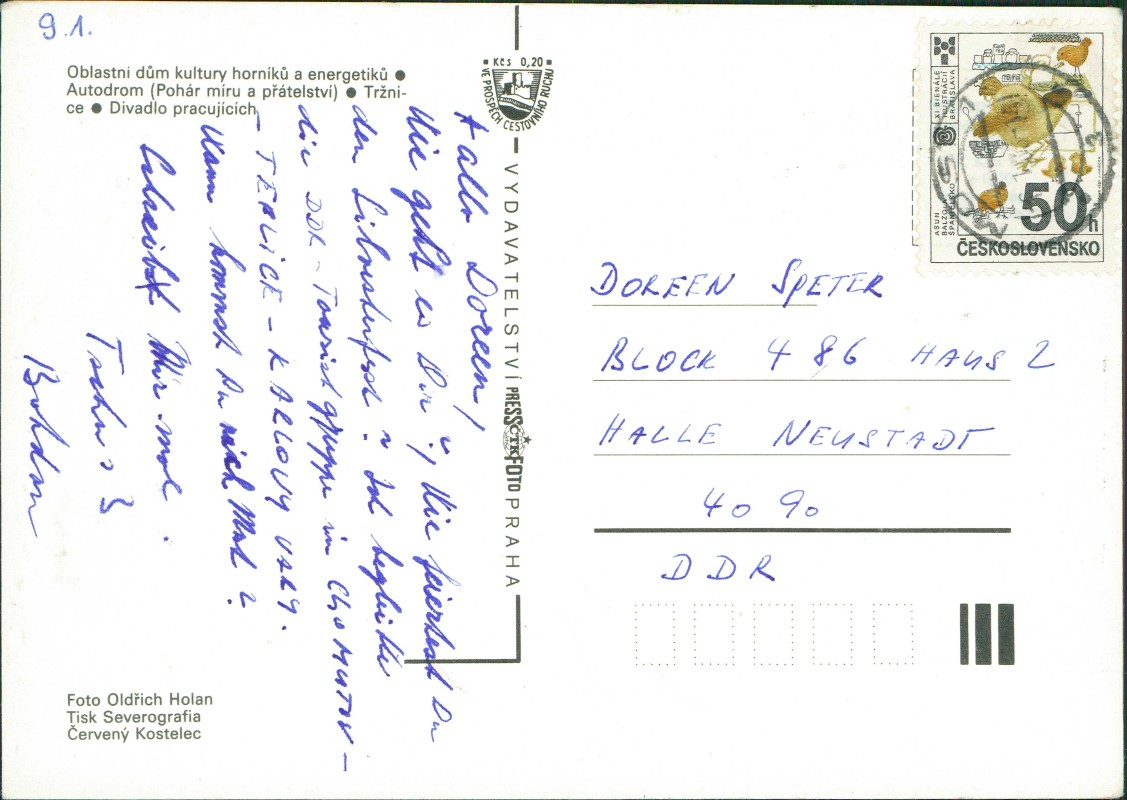 9.1.
Oblastni dům kultury horníků a energetiků ●
Autodrom (Pohár míru a přátelství) ● Tržni-
ce ● Divadlo pracujících
Hallo Doreen!
Wie geht es Dir? Wie feiertest Du
den Silvester? Ich begleitte
die DDR-Touristgruppe im CHOMUTOV-
- TEPLICE - KARLOVY VARY.
Wann kommst Du nach Most?
Schreibt Mir mal.
Tschüs
Bohdan
Foto Oldřich Holan
Tisk Severografia
Červený Kostelec
Kčs 0,20
VE PROSPĚCH CESTOVNÍHO RUCHU
VYDAVATELSTVÍ PRESSFOTO PRAHA
ČTK
XI BIENÁLE
ILUSTRÁCIÍ
BRATISLAVA
ASUN
BALZOLA
ŠPANIELSKO
50h
ČESKOSLOVENSKO
MOST
DOREEN SPETER
BLOCK 486 HAUS 2
HALLE NEUSTADT
4090
DDR